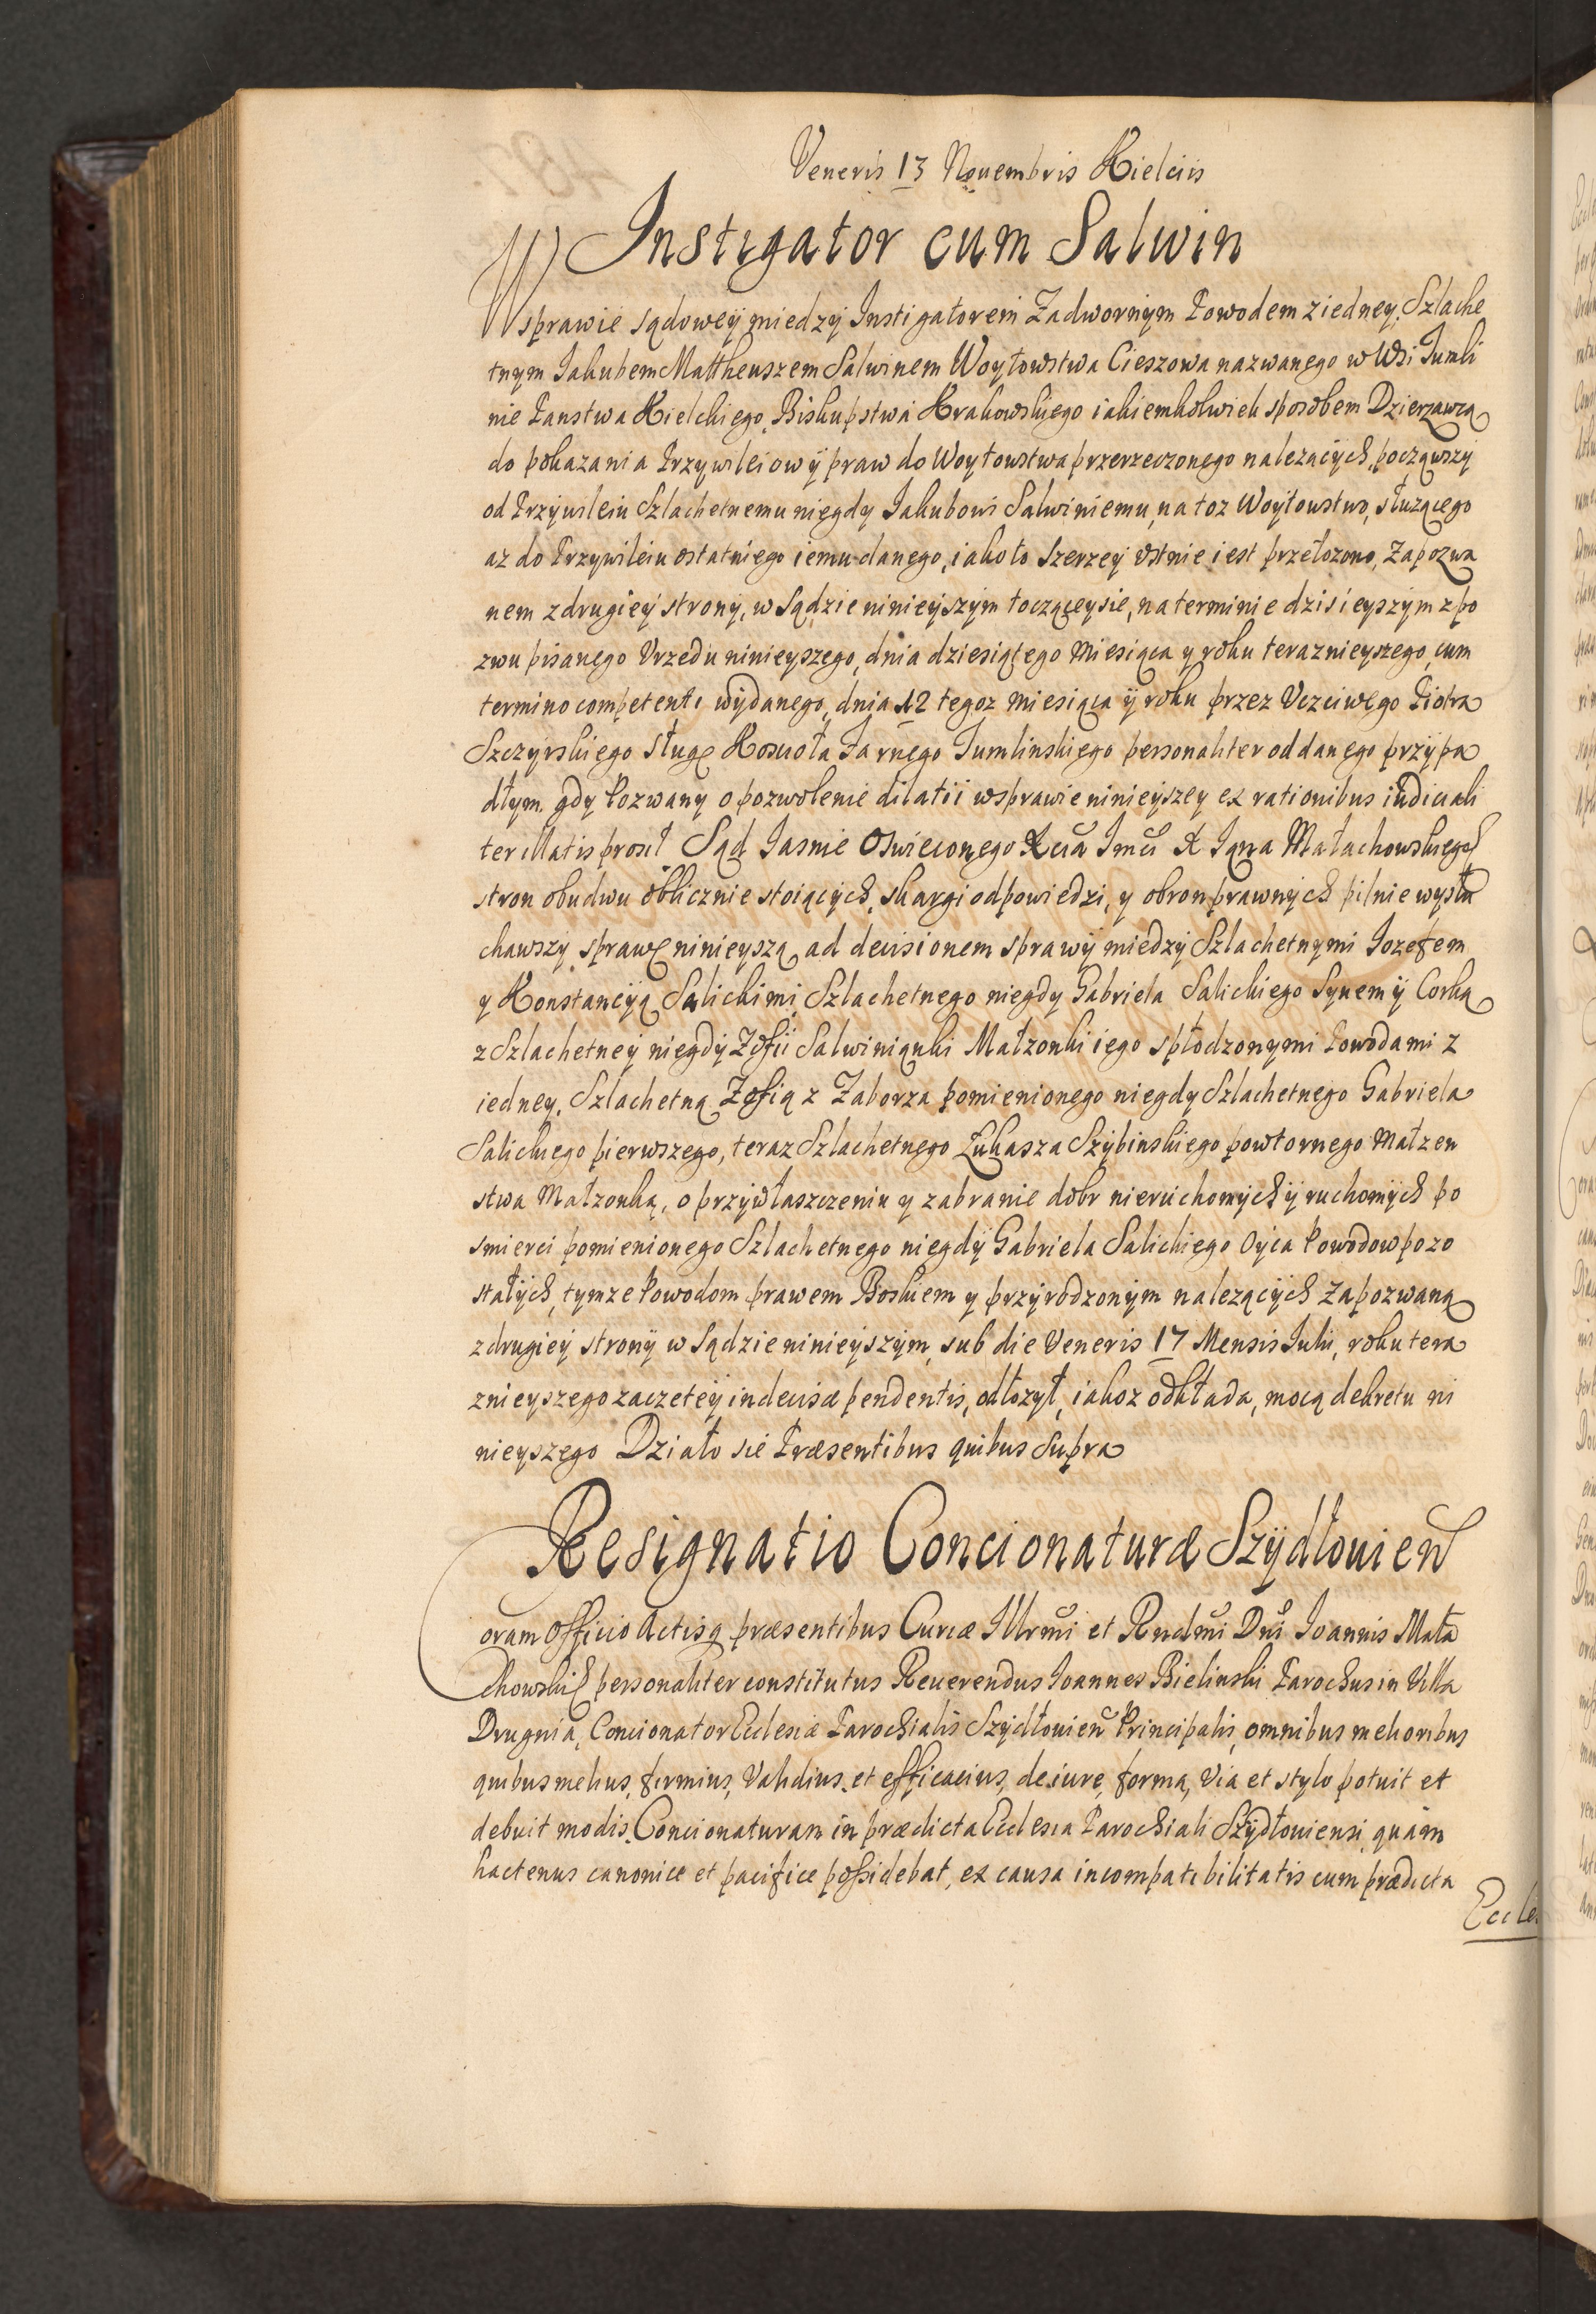 Veneris 13 Nouembris Kielciis
Instigator cum Salwin
W sprawie sądoweÿ miedzÿ Instigatorem Zadwornÿm Powodem z iedneÿ. Szlache
tnym Iakubem Mattheuszem Salwinem Woÿtowstwa Cieszowa nazwanego w Wsi Tumli
nie Panstwa Kielckiego, Biskupstwa Krakowskiego iakiemkolwiek sposobem Dzierzawcą
do pokazania Przywileiow ÿ praw do Woÿtowstwa przerzeczonego nalezącÿch, począwszÿ
od Przÿwileiu Szlachetnemu niegdy Iakubowi Salwiniemu, na toz Woÿtowstwo, słuzącego
az do Przywileiu ostatniego iemu danego, iako to szerzeÿ vstnie iest przełozono, Zapozwa
nem z drugieÿ stronÿ, w Sądzie ninieÿszÿm toczącey sie, na terminie dzisieyszÿm z po
zwu pisanego Vrzedu ninieyszego, dnia dziesiątego Miesiąca y roku teraznieyszego, cum
termino competenti wÿdanego, dnia 12 tegoz miesiąca ÿ roku przez Vczciwego Piotra
Szczÿrskiego sługę Koscioła Farnego Tumlinskiego personaliter oddanego przÿpa
dłym. gdy Pozwany o pozwolenie dilatii w sprawie ninieÿszey ex rationibus iudiciali
ter illatis prosił Sąd Iasnie Oswieconego Xcia Imci X Iana Małachowskiego
stron obudwu oblicznie stoiącÿch, skargi odpowiedzi, y obron prawnÿch pilnie wysłu
chawszÿ sprawę ninieyszą, ad decisionem sprawÿ miedzÿ Szlachetnymi Iozefem
y Konstancÿą Salickimi, Szlachetnego niegdy Gabriela Salickiego Synem ÿ Corką
z Szlachetneÿ niegdÿ Zofii Salwinianki Małzonki iego spłodzonymi Powodami z
iedney, Szlachetną Zofią z Zaborza pomienionego niegdy Szlachetnego Gabriela
Salickiego pierwszego, teraz Szlachetnego Łukasza Szÿbinskiego powtornego Małzen
stwa Małzonką, o przÿwłaszczeniu y zabranie dobr nieruchomÿch ÿ ruchomÿch po
smierci pomienionego Szlachetnego niegdÿ Gabriela Salickiego Oÿca Powodow pozo
stałÿch, tymze Powodom prawem Boskiem y przÿrodzonÿm nalezącÿch Zapozwaną
z drugieÿ stronÿ w Sądzie ninieÿszÿm, sub die Veneris 17 Mensis Iulii, roku tera
znieyszego zaczeteÿ indecisæ pendentis, odłozÿł, iakoz odkłada, mocą dekretu ni
nieyszego Działo sie Præsentibus quibus Supra
Resignatio Concionaturæ Szÿdłouien
Coram Officio Actisq præsentibus Curiæ Illrmi et Rndmi Dni Ioannis Mała
chowski personaliter constitutus Reuerendus Ioannes Bielinski Parochus in Villa
Drugnia, Concionator Ecclesiæ Parochialis Szÿdłouien Principalis, omnibus melioribus
quibus melius, firmius, Validius, et efficacius, de iure, forma, Via et stylo potuit et
debuit modis, Concionaturam in prædicta Ecclesia Parochiali Szÿdłouiensi, quam
hactenus canonice et pacifice possidebat, ex causa incompatibilitatis cum prædicta